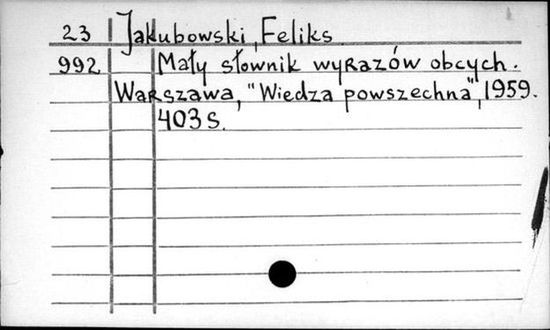 23 Jakubowski, Feliks
992 Mały słownik wyrazów obcych.
Warszawa, "Wiedza powszechna", 1959.
403 s.